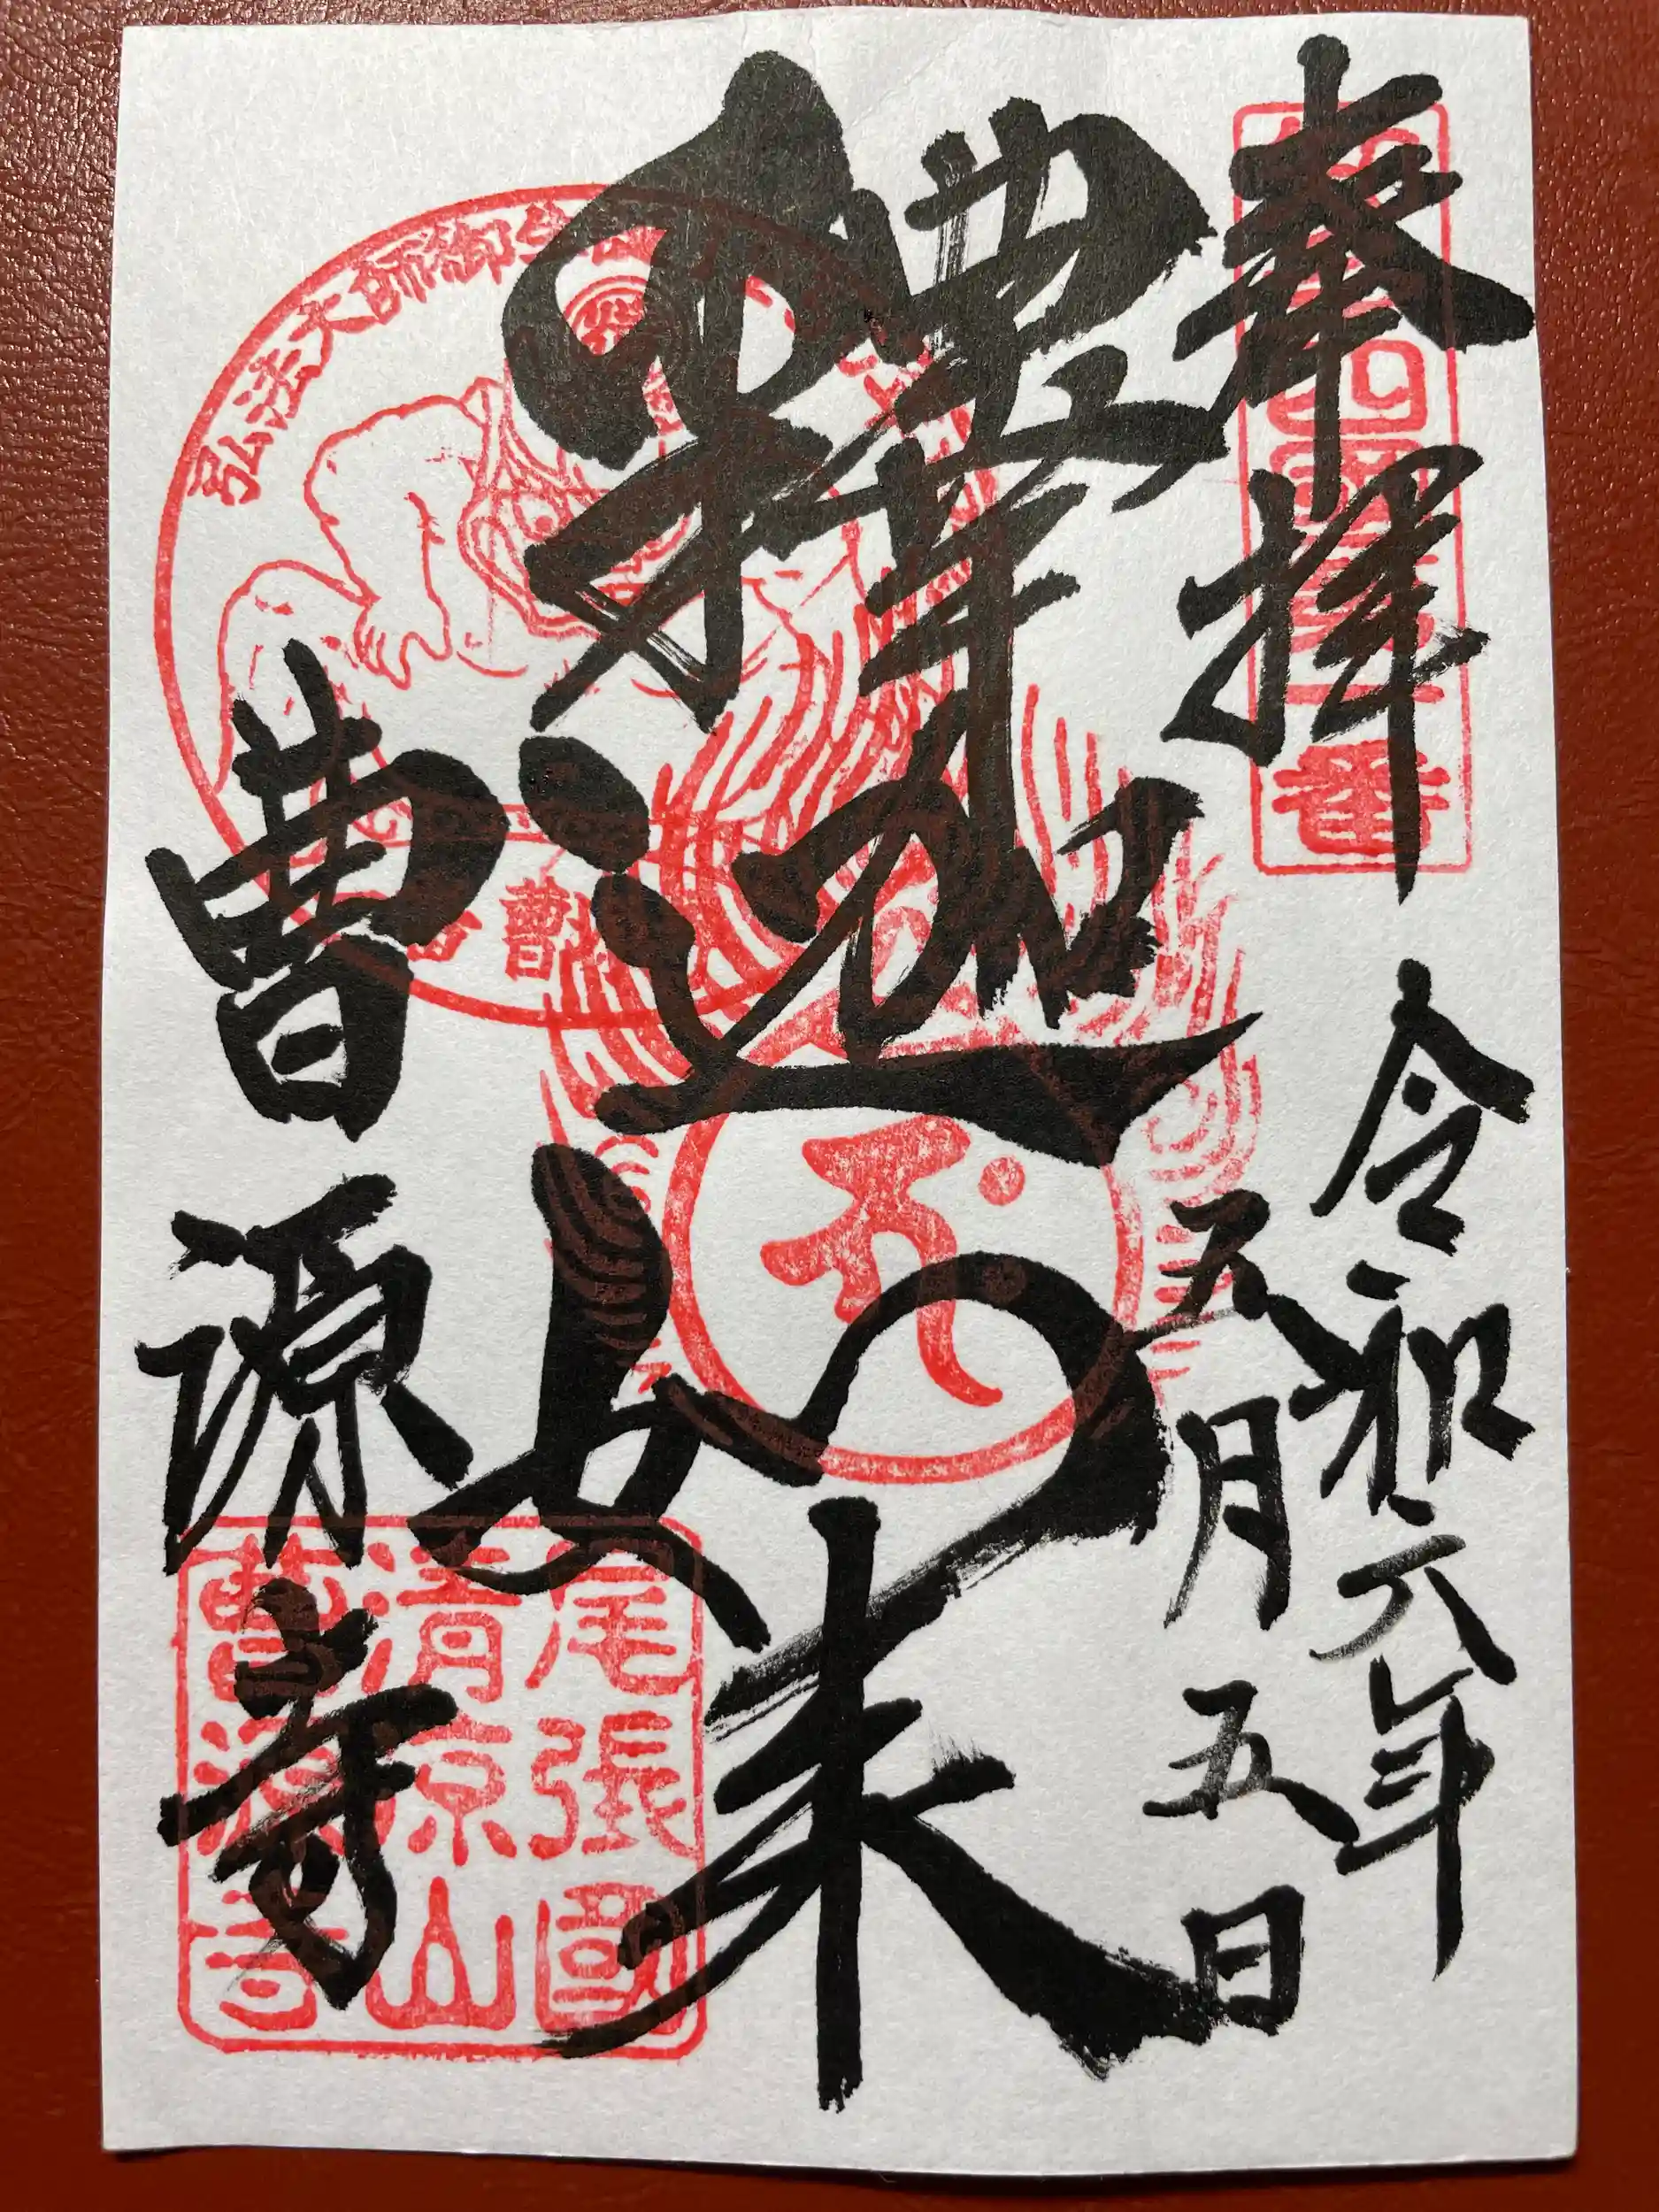 奉拝
令和六年
五月五日
釋迦如来
曹源寺
弘法大師御生
番
尾張國
清涼山
曹源寺